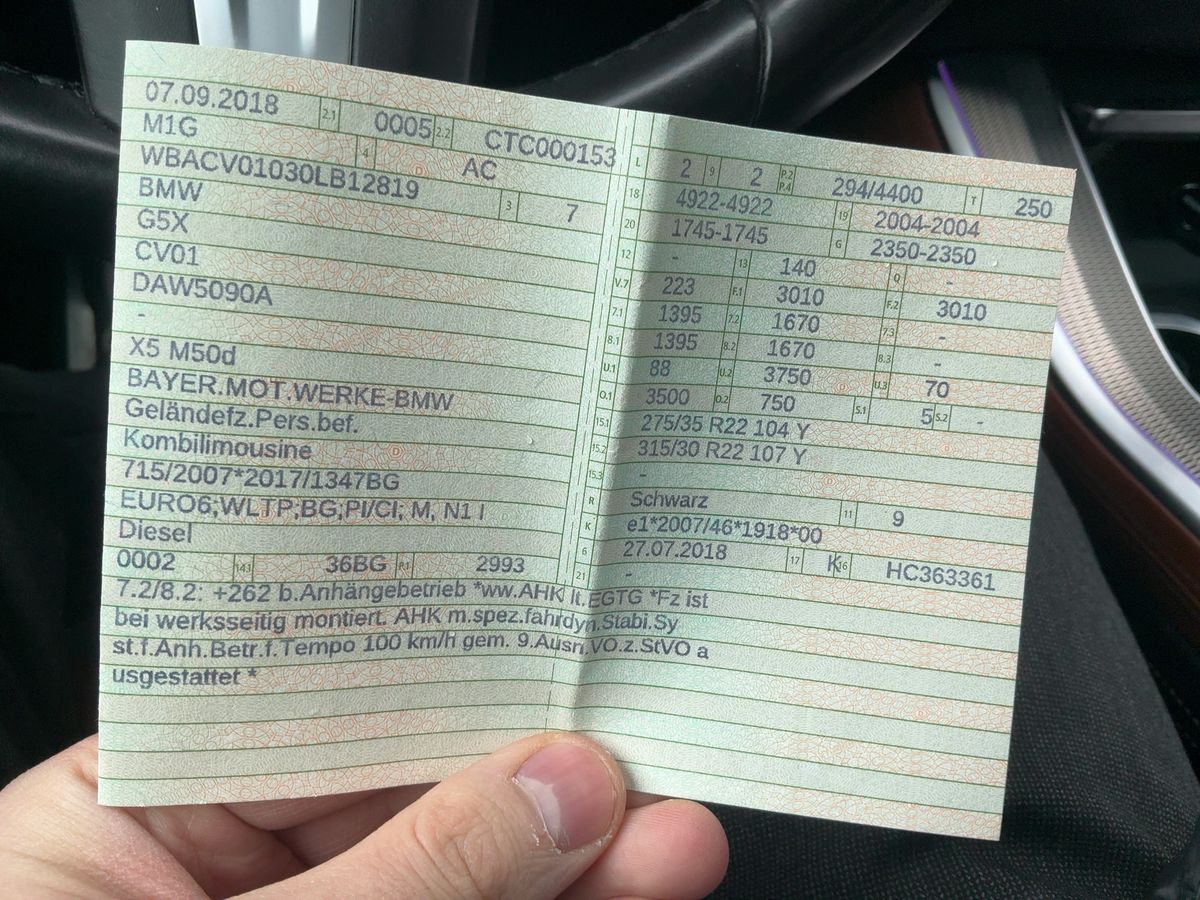 07.09.2018 2.1 0005 2.2 CTC000153
M1G 4 AC
WBACV01030LB12819 3 7
BMW
G5X
CV01
DAW5090A
-
X5 M50d
BAYER.MOT.WERKE-BMW
Geländefz.Pers.bef.
Kombilimousine
715/2007*2017/1347BG
EURO6;WLTP;BG;PI/CI; M, N1 I
Diesel
0002 14.3 36BG P.1 2993
L 2 9 2 P.2 P.4 294/4400 T 250
18 4922-4922 19 2004-2004
20 1745-1745 G 2350-2350
12 - 13 140 Q -
V.7 223 F.1 3010 F.2 3010
7.1 1395 7.2 1670 7.3 -
8.1 1395 8.2 1670 8.3 -
U.1 88 U.2 3750 U.3 70
O.1 3500 O.2 750 S.1 5 S.2 -
15.1 275/35 R22 104 Y
15.2 315/30 R22 107 Y
15.3 -
R Schwarz 11 9
K e1*2007/46*1918*00
6 27.07.2018 17 K 16 HC363361
21 -
7.2/8.2: +262 b.Anhängebetrieb *ww.AHK lt.EGTG *Fz ist
bei werksseitig montiert. AHK m.spez.fahrdyn.Stabi.Sy
st.f.Anh.Betr.f.Tempo 100 km/h gem. 9.Ausn.VO.z.StVO a
usgestattet *